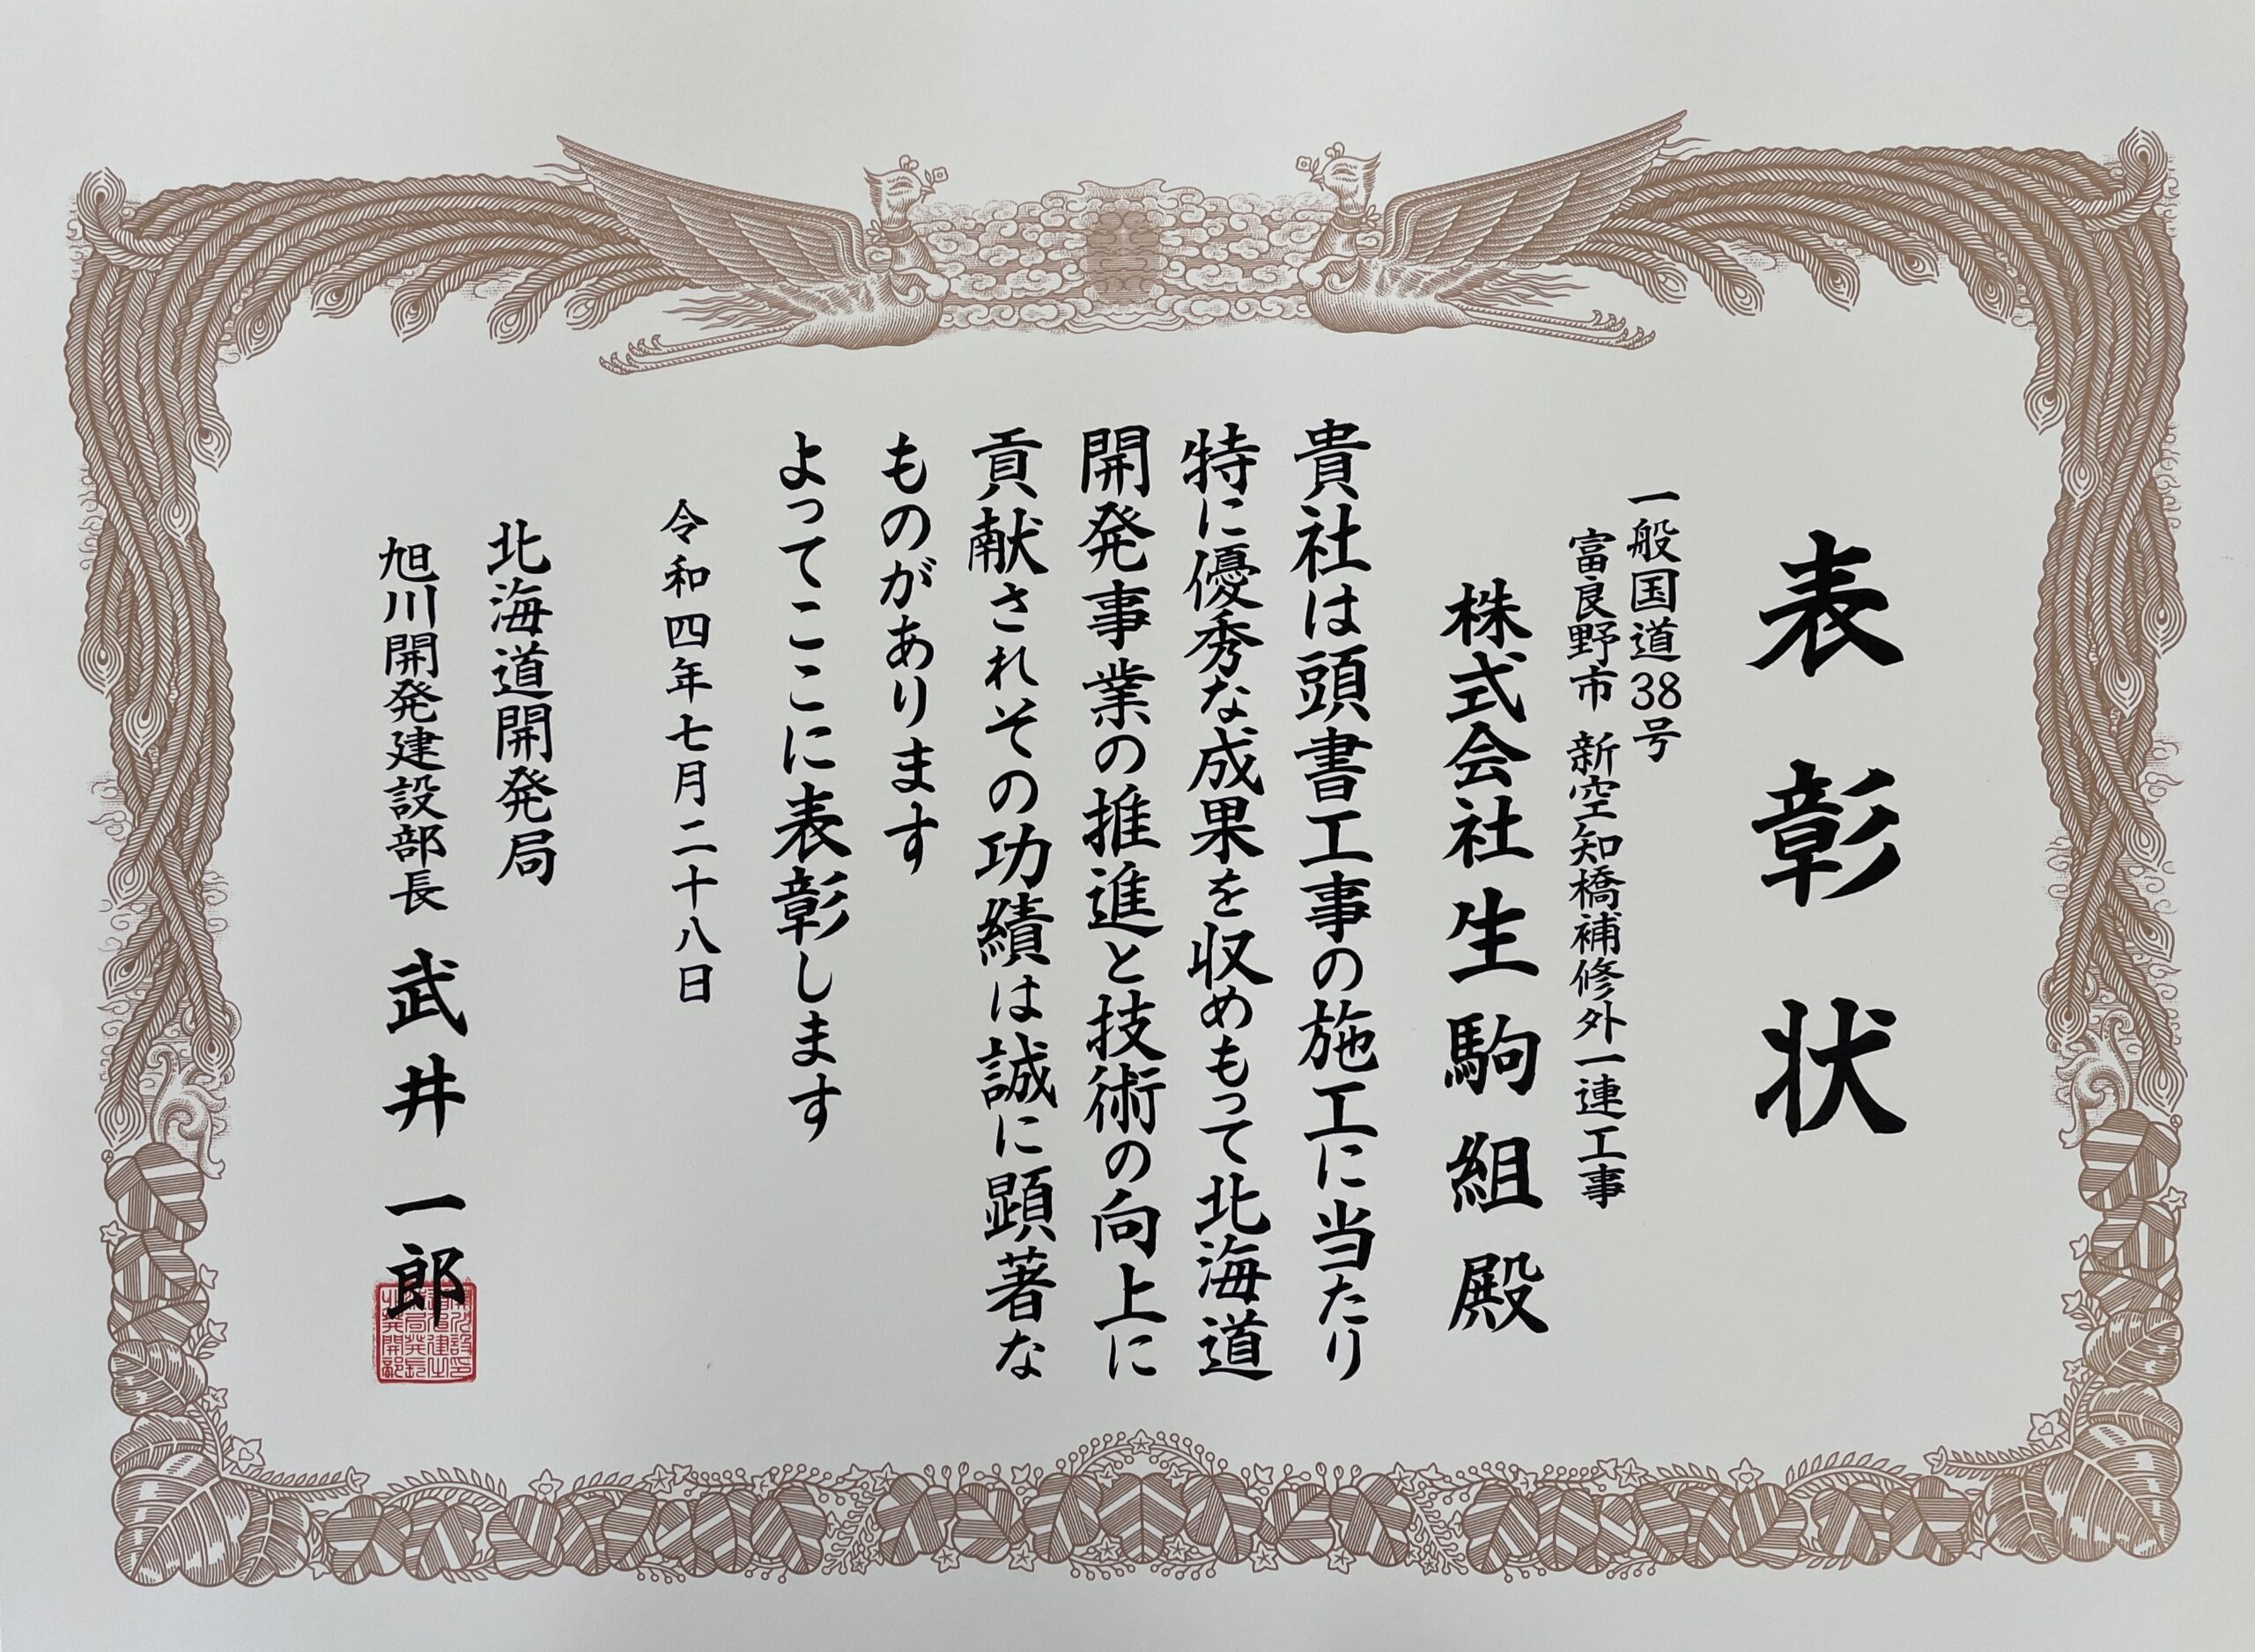 表彰状
一般国道38号
富良野市 新空知橋補修外一連工事
株式会社生駒組殿
貴社は頭書工事の施工に当たり
特に優秀な成果を収めもって北海道
開発事業の推進と技術の向上に
貢献されその功績は誠に顕著な
ものがあります
よってここに表彰します
令和四年七月二十八日
北海道開発局
旭川開発建設部長 武井一郎